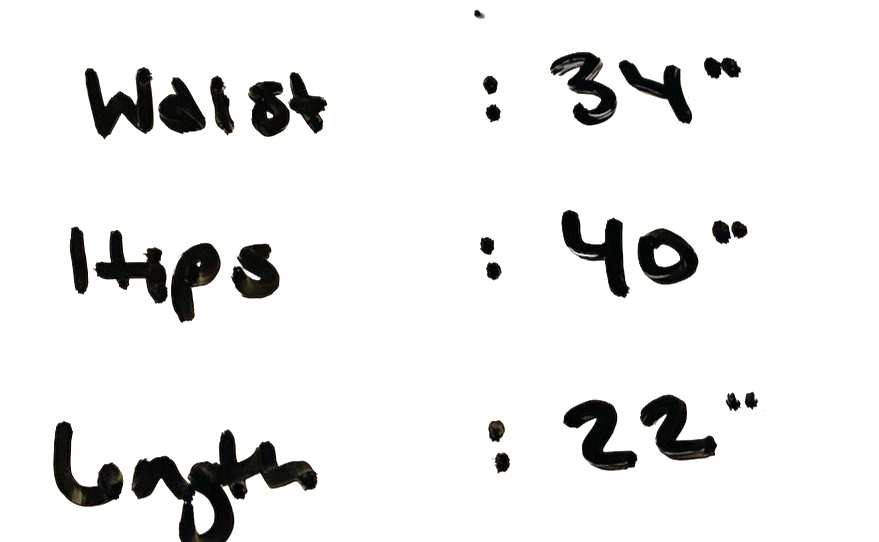 Waist : 34"
Hips : 40"
Length : 22"